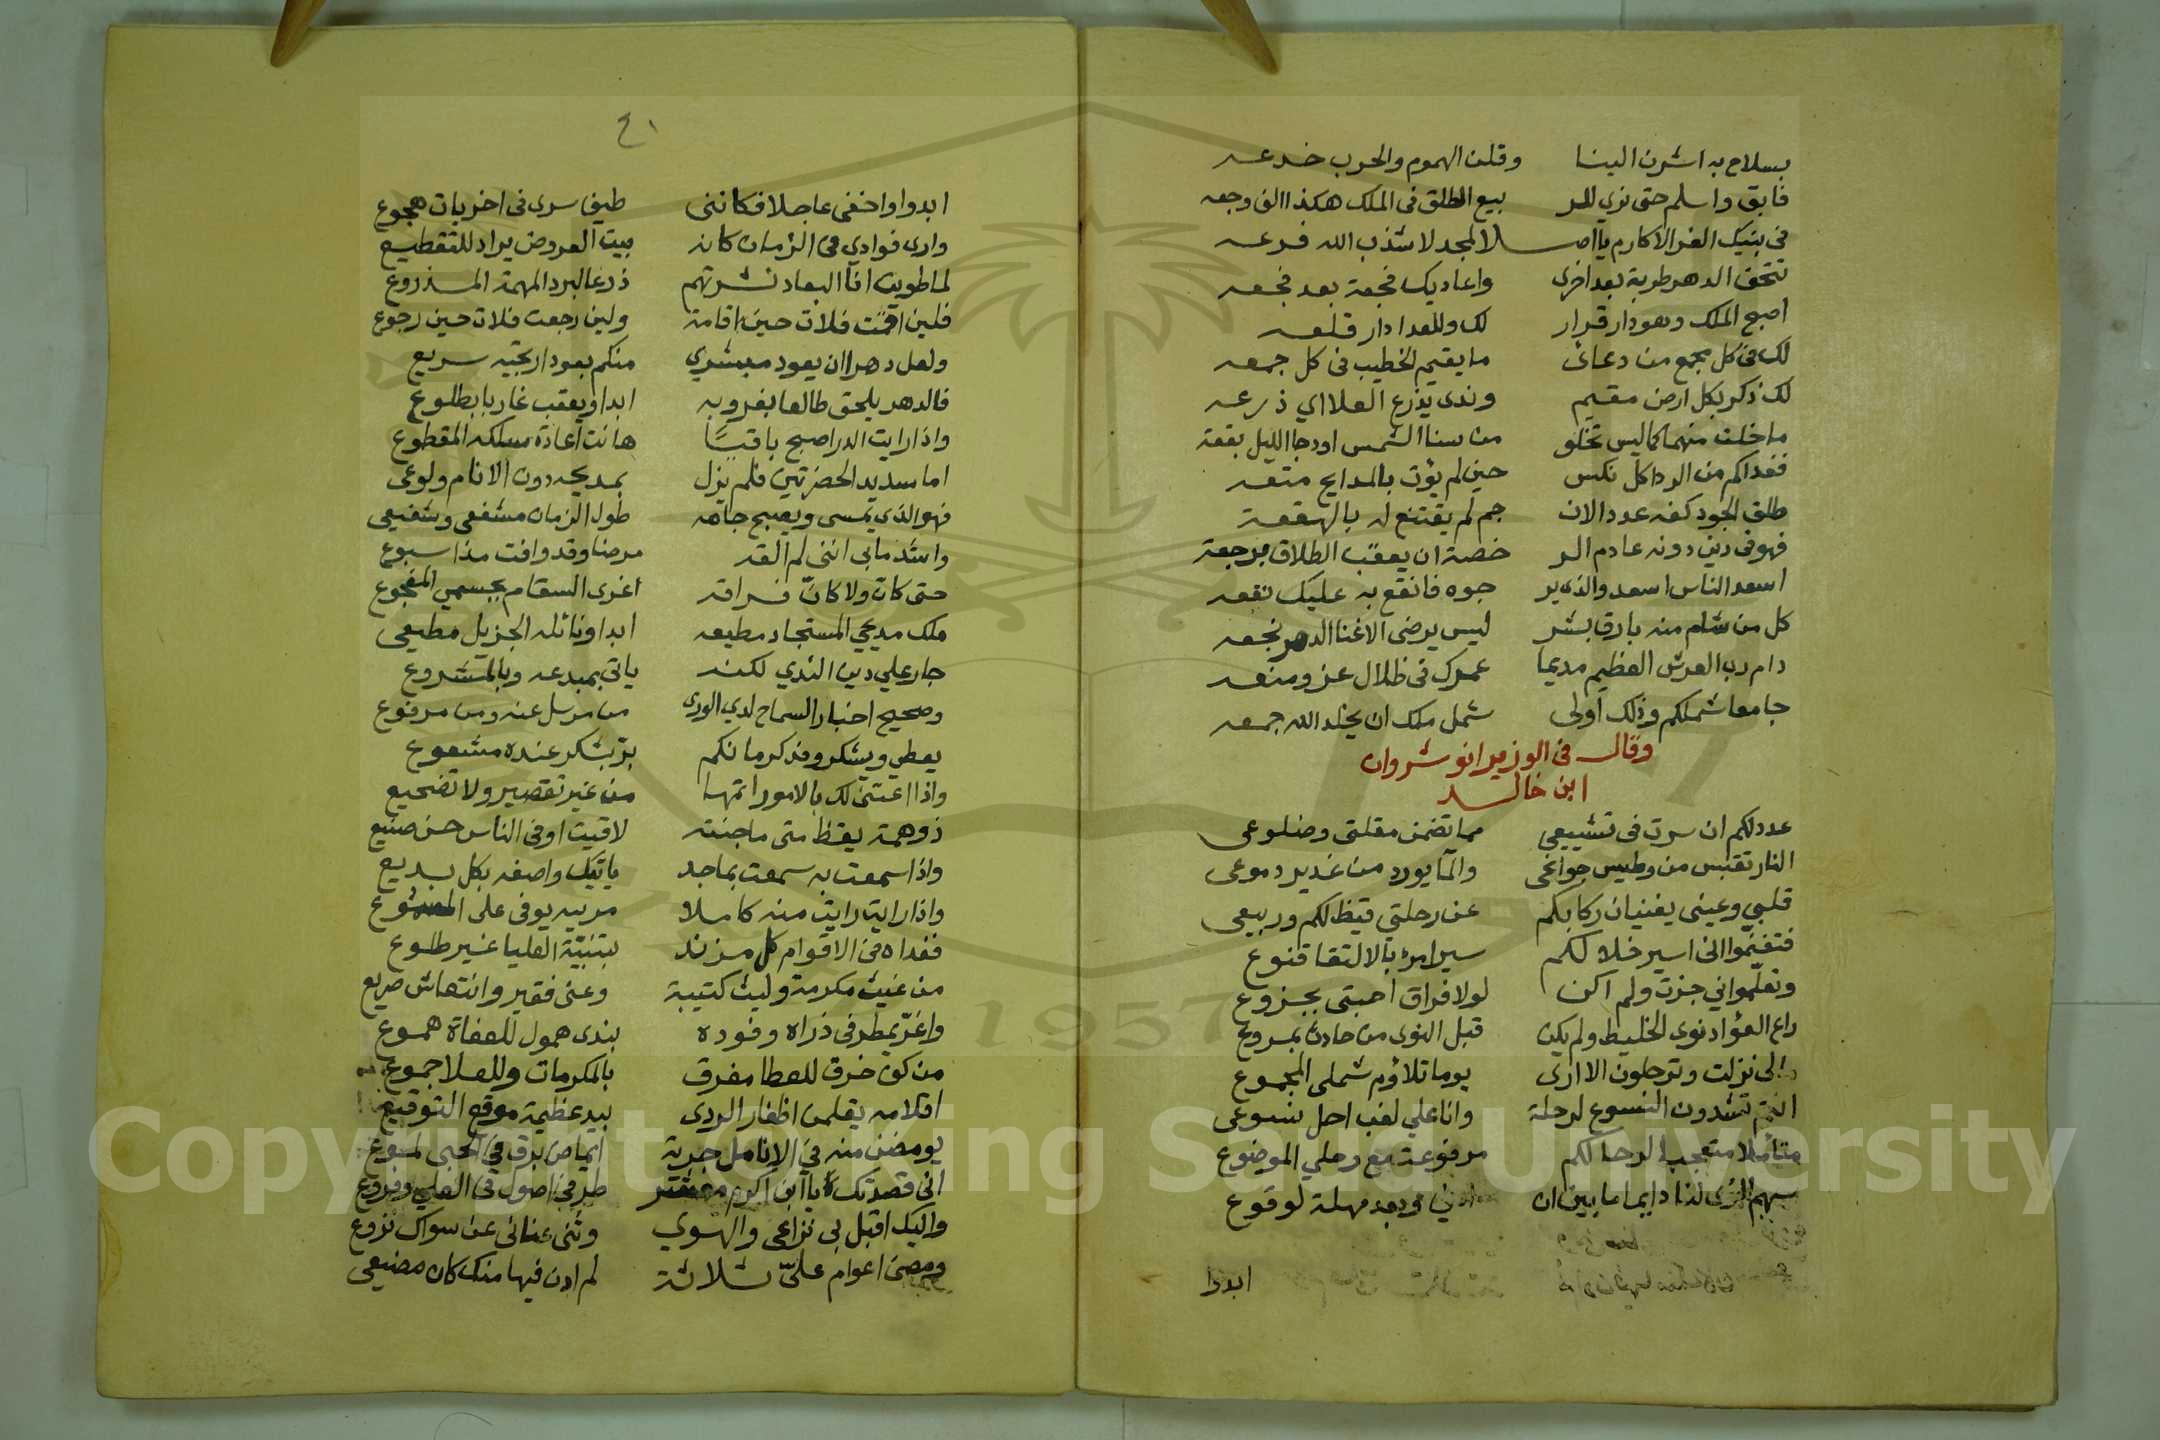 بسلاح به اشرن الينا وقلن الهموم والحرب خدعه
فابق واسلم حتى نرى للد بيع الطلق فى الملك هكذا الف وجعه
فى بنيك الغر الاكارم يا اصـــلا لمجد لا شذب الله فرعه
تتحف الدهر طربة بعد اخرى واعاديك فجعة بعد فجعه
اصبح الملك وهو دار قرار لك وللعدا دار قلعه
لك فى كل مجمع من دعائى ما يقيم الخطيب فى كل جمعه
لك ذكر بكل ارض مقيم وندى يذرع العلا اي ذرعه
ما خلت منهما كما ليس تخلو من سنا الشمس او دجا الليل بقعة
ففداكم من الردا كل نكس حين لم يؤت بالمدايح متعه
طلق الجود كفه عدد الان جم لم يقتنع له بالهقعة
فهو فى دين دونه عادم الر خصة ان يعقب الطلاق برجعة
اسعد الناس اسعد والذى ير جوه فانقع به عليك نقعه
كل من شام منه بارق بشر ليس يرضى الا غنا الدهر نجعه
دام رب العرش العظيم مديما عمرك فى ظلال عز ومنعه
جامعا شملكم وذلك أولى شمل ملك ان يخلد الله جمعه
وقال فى الوزير انوشروان
ابن خالد
عدد لكم ان سرت فى تشييعى مما تضمن مقلتى وضلوعى
النار تقتبس من وطيس جوانحى والما يورد من غدير دموعى
قلبي وعينى يغنيان ركابكم عن رحلتي قيظ لكم وربيعى
فتغنموا انى اسير خلالكم سير امرء بالالتقا قنوع
وتعلموا اني جزت ولم اكن لولا فراق أحبتى بجزوع
راع الفؤاد نوى الخليط ولم يكن قبل الهوى من حادث بمروع
انى نزلت وترحلون الا ارى يوما تلاؤم شملى المجموع
انتم تشدون النسوع لرحلة وانا علي لغب احل نسوعى
متأملا متعجبا لرحالكم مرفوعة مع رحلي الموضوع
سهم الذى لنا دايما ما بين ان وبعد مهلة لوقوع
ابدوا
٤١
ابدوا واخفى عاصلا فكاننى طيف سرى فى اخريات هجوع
وارى فوادي فى الزمان كانه بيت العروض يراد للتقطيع
لما طويت انا البعاد نشرتهم ذرعا لبرد المهمة المذروع
فلين اقمت فلات حين اقامة ولين رجعت فلات حين رجوع
ولعل دهرا ان يعود مبشري منكم بعود ارتجيه سريع
فالدهر يلحق طالعا بغروبه ابدا ويعقب غاربا بطلوع
واذا رايت الدر اصبح باقيًا هانت اعادة مسلكه المقطوع
اما سديد الحضرتين فلم يزل بمديحه دون الانام ولوعى
فهو الذى يمسى ويصبح جاهه طول الزمان مشفعى وشفيعى
واشد ما بى اننى لم القد مرضا وقد وافت مذ اسبوع
حتى كان ولا كان فراقه اغرى السقام بجسمي المفجوع
ملك مديحي المستجاد مطيعه ابدا ونائله الجزيل مطيعى
جار علي دين الندي لكنه ياتى بمبدعه وبالمشروع
وصحيح اخبار السماح لدي الورى من مرسل عنه ومن مرفوع
يعطي ويشكر وفد كرما نكم بر بشكر عنده مشفوع
واذا اعتنى لك بالامور اتمها من غير تقصير ولا تضييع
ذو همة يقظ متى ما جئته لاقيت اوفى الناس حسن صنيع
واذا سمعت به سمعت بماجد ياتيك واصفه بكل بديع
واذا رايت رايت منه كاملا مرييه يوفى على المسموع
ففداه فى الاقوام كل مزند بثنيّة العليا غير طلوع
من غيث مكرمة وليث كتيبة وغنى فقير وانتعاش صريع
واغرّ يمطر فى ذراه وفوده بندى همول للعفاة هموع
من كف خرق للعطا مفرق بالمكرمات وللعلا جموع
اقلامه يقلمن اظفار الردى بيد عظيمة موقع التوقيع
يومضن منه في الانامل جرية ايماض برق في الحبى لموع
انى قصدتك يا ابن اكرم معشر طر فى اصول فى العلي وفروع
واليك اقبل بى نزاعى والهوي وثنى عنانى عن سواك نزوع
ومضى اعوام علىّ ثلاثة لم ادن فيها منك كان مضيعى